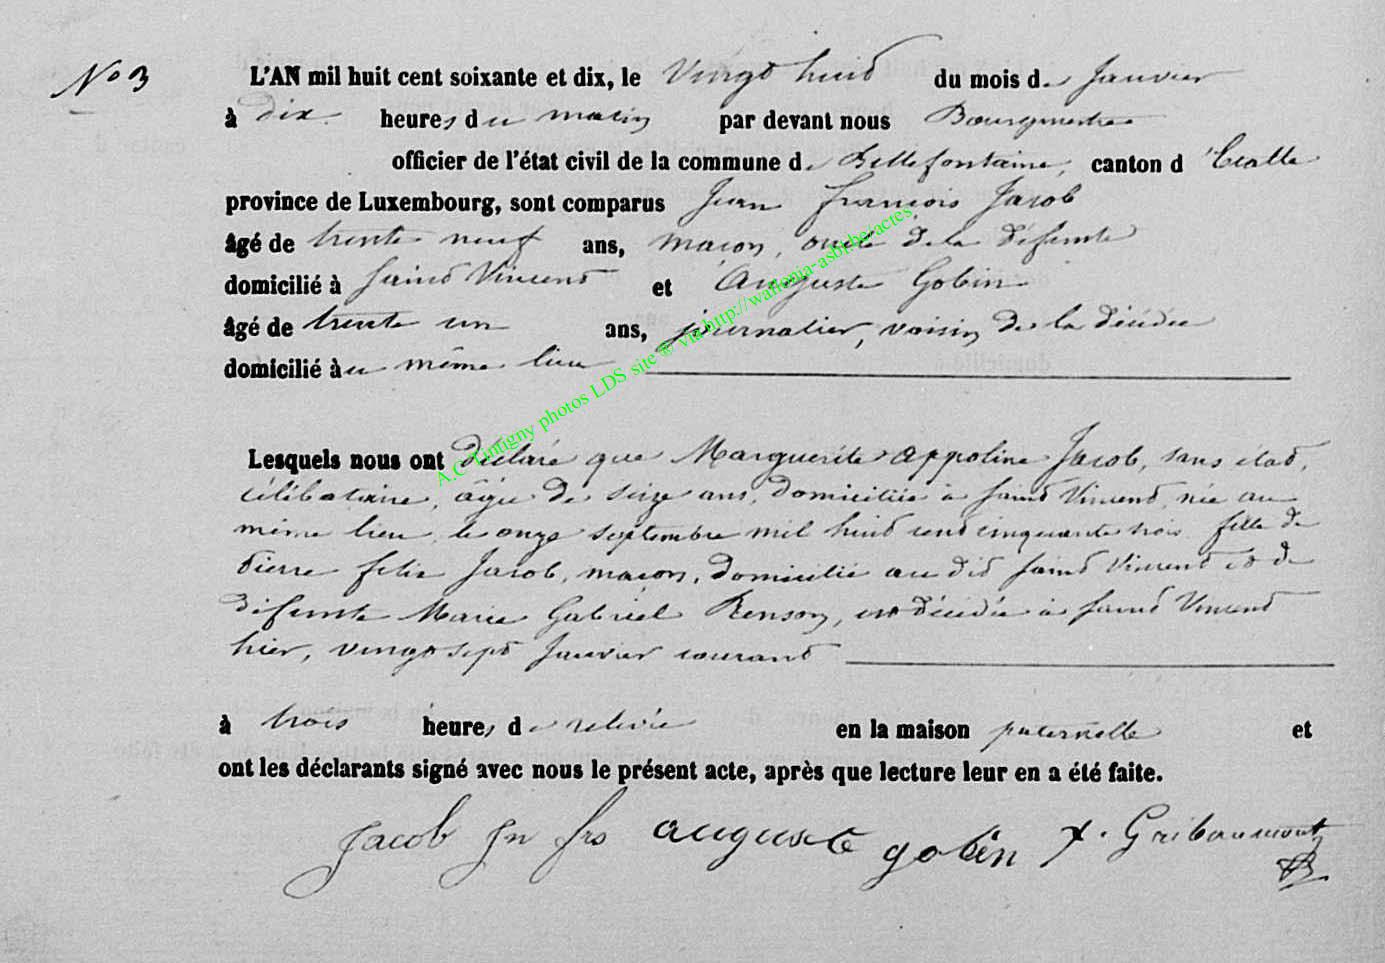 No 3
L'AN mil huit cent soixante et dix, le vingt huit du mois de Janvier
à dix heures du matin par devant nous Bourgmestre
officier de l'état civil de la commune de Bellefontaine, canton d'Etalle
province de Luxembourg, sont comparus Jean françois Jacob
âgé de trente neuf ans, maçon, oncle de la défunte
domicilié à Saint Vincent et Auguste Gobin
âgé de trente un ans, journalier, voisin de la décédée
domicilié au même lieu
Lesquels nous ont déclaré que Marguerite Appoline Jacob, sans état,
célibataire, âgée de seize ans, domiciliée à Saint Vincent, née au
même lieu, le onze septembre mil huit cent cinquante trois fille de
Pierre felix Jacob, maçon, domicilié au dit Saint Vincent et de
défunte Marie Gabriel Renson, est décédée à Saint Vincent
hier, vingt sept Janvier courant
à trois heures de relevée en la maison paternelle et
ont les déclarants signé avec nous le présent acte, après que lecture leur en a été faite.
Jacob Jn frs auguste gobin X. Gribaumont
A.C. Tintigny photos LDS site ® via http://wallonia-asbl.be/actes